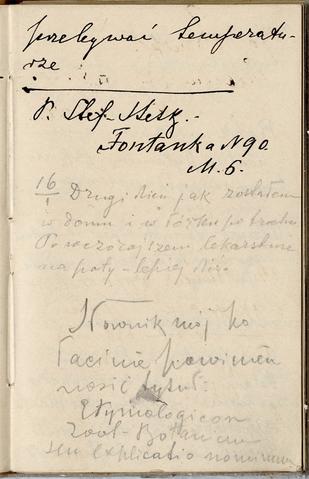 przebywać temperatu-
rze
P. Stef. Metz.-
Fontanka N 90
M. 6.
16/1 Drugi dzień jak zostałem
w domu i w łóżku po trochu
Po wczorajszem lekarstwie
na poty - lepiej dziś.
Słownik mój po
łacinie powinien
nosić tytuł:
Etymologicon
zool-Botanicum
seu explicatio nominum